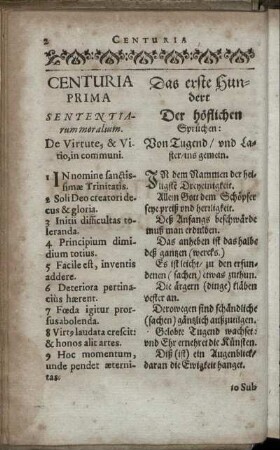 2 CENTURIA
CENTURIA
PRIMA
SENTENTIA-
rum moralium.
De Virtute, & Vi-
tio, in communi.
1 IN nomine sanctis-
simæ Trinitatis.
2 Soli Deo creatori de-
cus & gloria.
3 Initii difficultas to-
leranda.
4 Principium dimi-
dium totius.
5 Facile est, inventis
addere.
6 Deteriora pertina-
ciùs hærent.
7 Fœda igitur pror-
sus abolenda.
8 Virtꝰ laudata crescit:
& honos alit artes.
9 Hoc momentum,
unde pendet æterni-
tas.
Das erste Hun-
dert
Der höflichen
Sprüchen:
Von Tugend / vnd La-
ster / ins gemein.
IN dem Nammen der hei-
ligste Dreyeinigkeit.
Allein Gott dem Schöpfer
seye preiß vnd herzligkeit.
Deß Anfangs beschwärde
muß man erdulden.
Das anheben ist das halbe
deß gantzen (wercks.)
Es ist leicht / zu den erfun-
denen (sachen) etwas zuthun.
Die ärgern (dinge) kläben
vester an.
Derowegen sind schändliche
(sachen) gäntzlich außzutilgen.
Gelobte Tugend wachset:
vnd Ehr ernehret die Künste.
Diß (ist) ein Augenblick /
daran die Ewigkeit hanget.
10 Sub